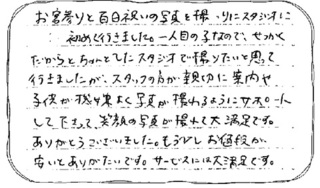 お宮参りと百日祝いの写真を撮りにスタジオに
初めて行きました。一人目の子なので、せっかく
だからとちゃんとしたスタジオで撮りたいと思って
行きましたが、スタッフの方が親切に案内や
子供が機嫌良く写真が撮れるようにサポート
して下さって、笑顔の写真が撮れて大満足です。
ありがとうございました。もう少しお値段が
安いとありがたいです。サービスには大満足です。